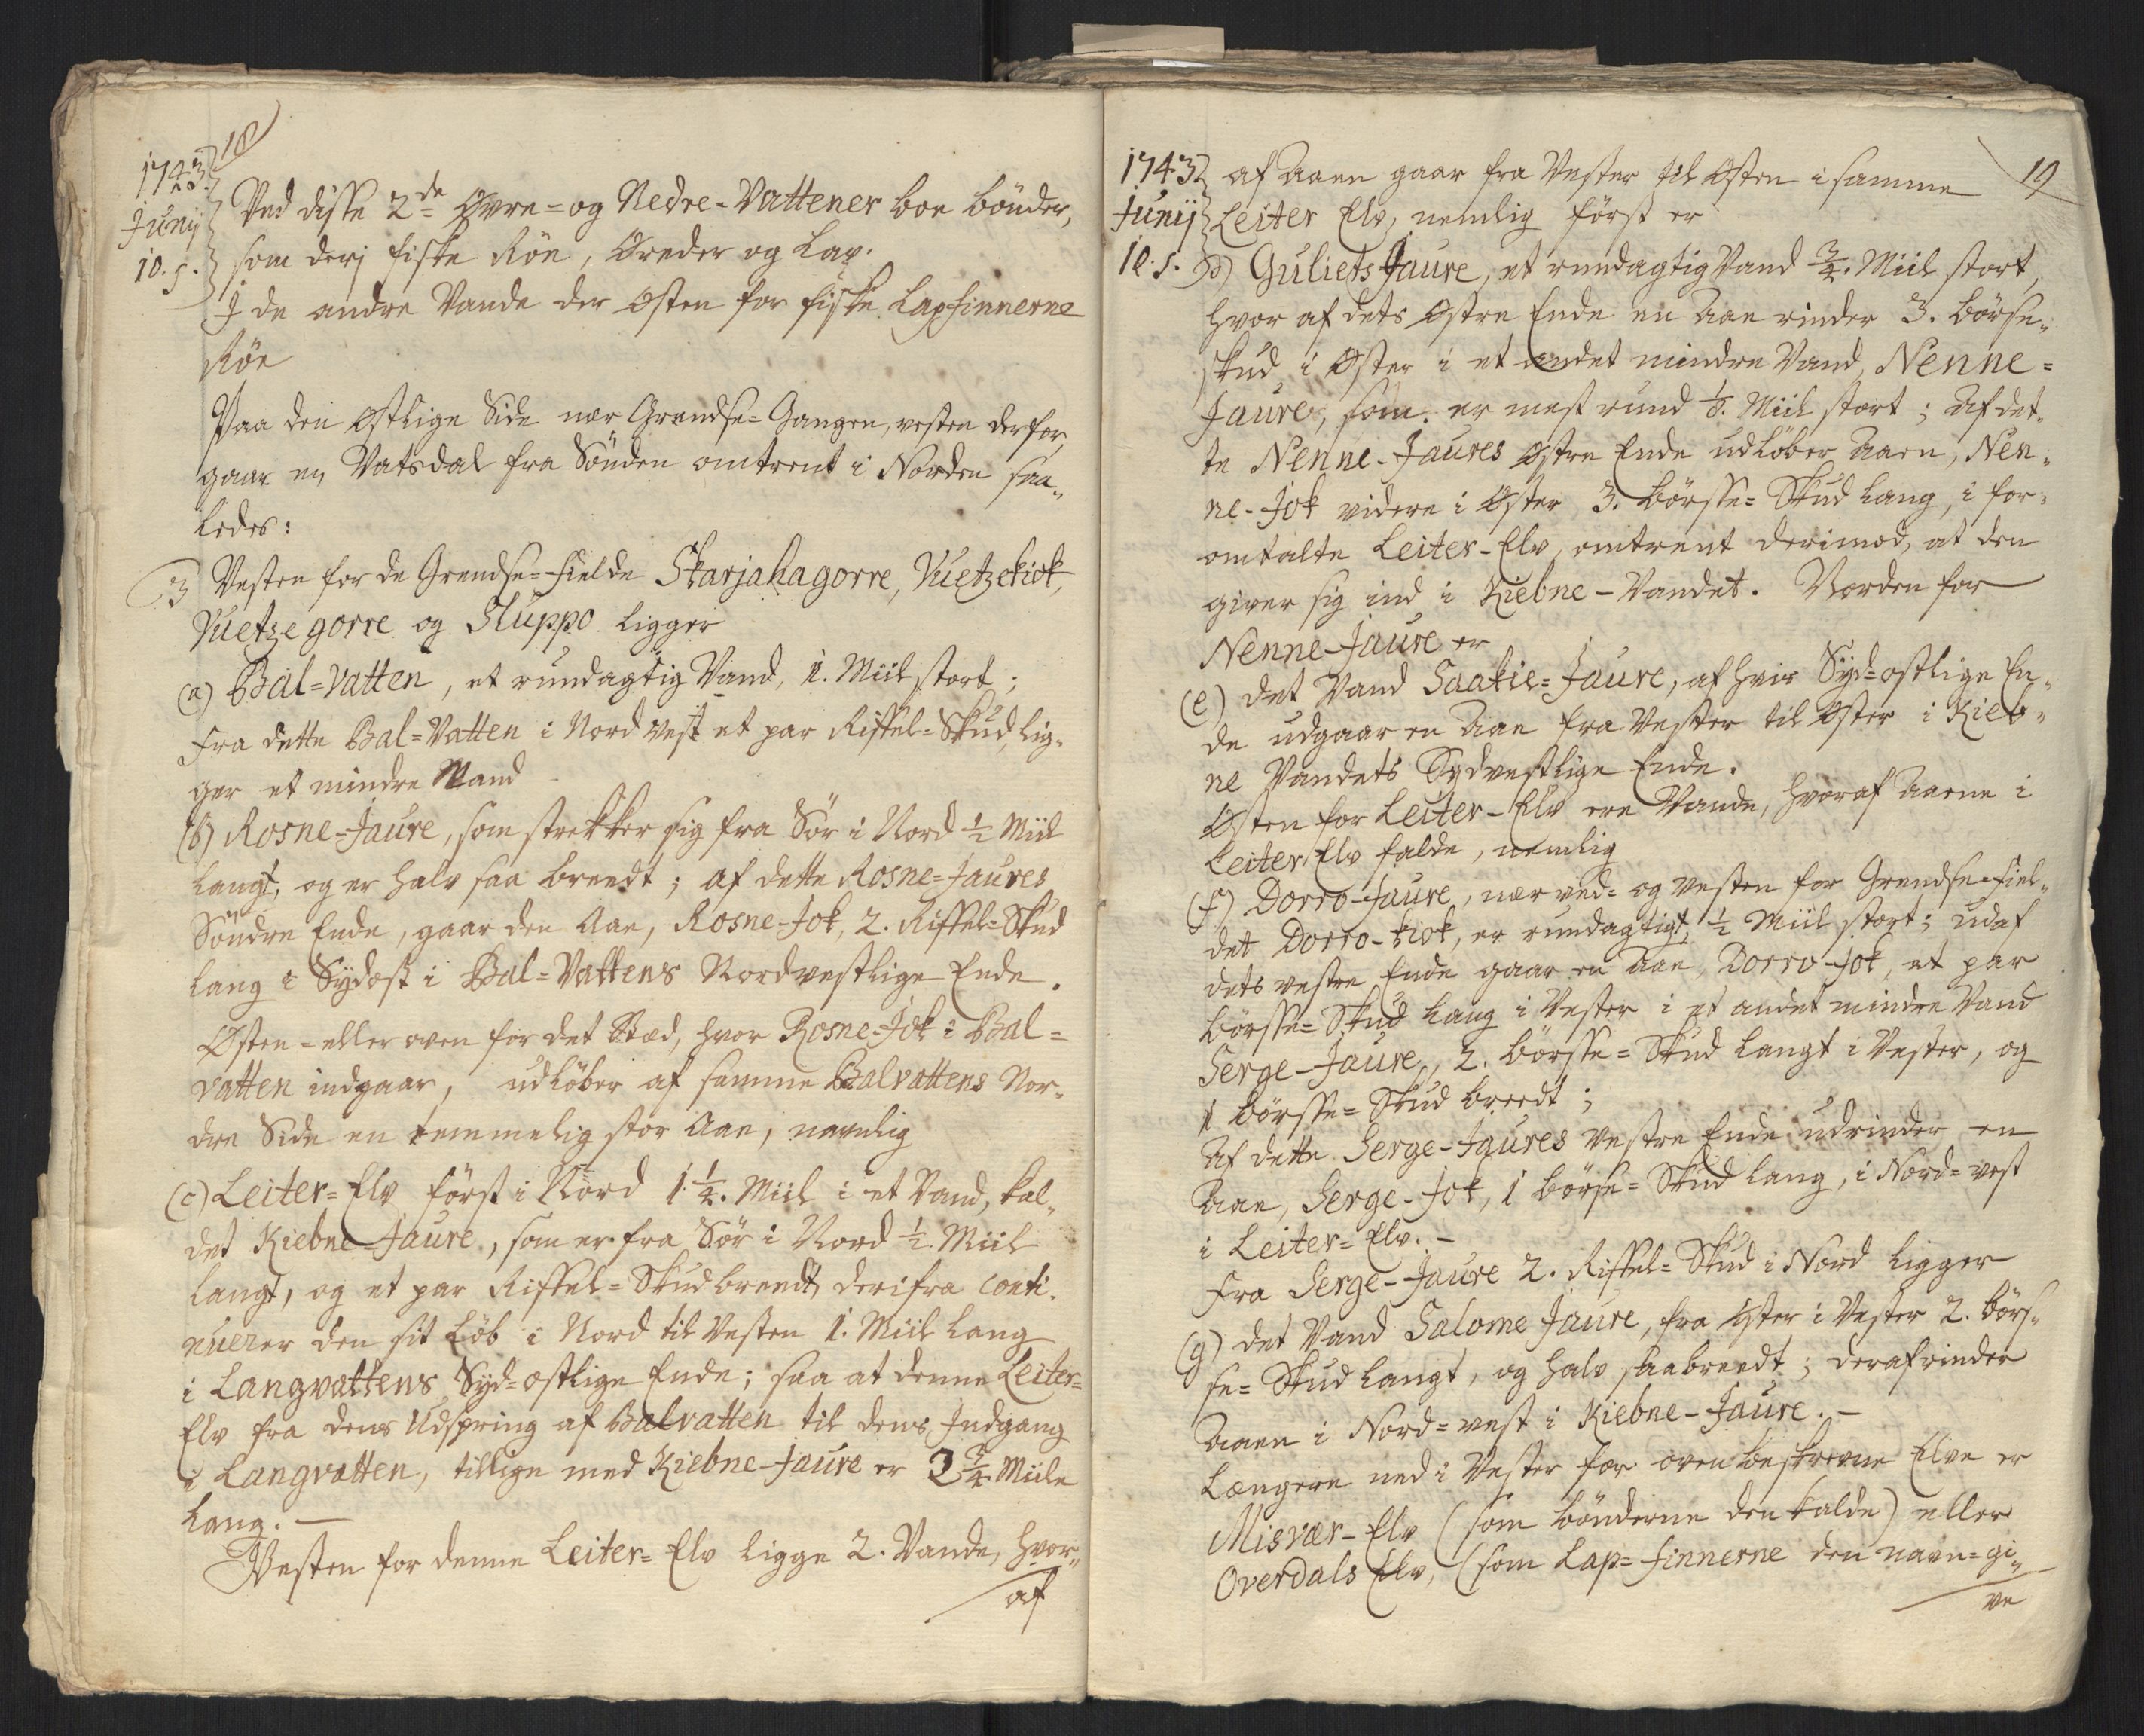 18
1743.
Junij
10. s.
Ved disse 2de Øvre= og Nedre-Vattener boe bönder,
som derj fiske Röe, Öreder og Lax.
I de andre Vande der Østen for fiske Lapfinnerne
Röe
Paa den Østlige Side nær Grendse=Gangen, vesten derfor,
gaar en Vatsdal fra Sönden omtrent i Norden saa„
ledes:
3 Vesten for de Grendse=Fielde Skarjahagorre, Vuetzekiok,
Vuetzegorre og Sluppo ligger
(a) Bal=Vatten, et rundagtig Vand, 1. Miil stort;
Fra dette Bal=Vatten i Nordvest et par Riffel=Skud, lig„
ger et mindre Vand
(b) Rosne-Jaure, som strekker sig fra Sör i Nord ½ Miil
langt, og er halv saa breedt; af dette Rosne=Jaures
Söndre Ende, gaar den Aae, Rosne-Jok, 2. Riffel=Skud
lang i Sydost i Bal=Vattens Nordvestlige Ende.
Østen=eller oven for det Sted, hvor Rosne-Jok i Bal=
vatten indgaar, udlöber af samme Balvattens Nor„
dre Side en temmelig stor Aae, navnlig
(c) Leiter=Elv först i Nord 1 ¼. Miil i et Vand, kal„
det Kiebne-Jaure, som er fra Sör i Nord ½ Miil
langt, og et par Riffel=Skud breedt, derifra conti„
nuerer den sit Löb i Nord til Vesten 1. Miil lang
i Langvattens Syd=ostlige Ende; saa at denne Leiter=
Elv fra dens Udspring af Balvatten til dens Indgang
i Langvatten, tillige med Kiebne-Jaure er 2 ¾ Miile
lang. —
Vesten for denne Leiter=Elv ligge 2. Vande, hvor„
af
19
1743
Junij
10. s.
af Aaen gaar fra Vester til Østen i samme
Leiter Elv, nemlig först er
D) Guliets Jaure, et rundagtig Vand ¾. Miil stort,
hvor af dets Østre Ende en Aae rinder 3. börse„
skud i Øster i et andet mindre Vand, Nenne=
Jaure, som er mest rund ⅛. Miil stort; af det„
te Nenne-Jaures Østre Ende udlöber Aaen, Nen„
ne-Jok videre i Øster 3. börsse=Skud lang, i for„
omtalte Leiter-Elv, omtrent derimod, at den
giver sig ind i Kiebne-Vandet. Norden for
Nenne-Jaure er
(e) det Vand Saakie=Jaure, af hvis Syd=ostlige En„
de udgaar en Aae fra Vester til Øster i Kieb„
ne Vandets Sydvestlige Ende.
Østen for Leiter-Elv ere Vande, hvoraf Aaerne i
Leiter Elv falde, nemlig
(f) Dorro-Jaure, nær ved= og vesten for Grendse=Fiel„
det Dorro-kiok, er rundagtigt, ½ Miil stort; ud af
dets vestre Ende gaar en Aae, Dorro-Jok, et par
börsse=Skud lang i Vester i et andet mindre Vand
Serge-Jaure, 2. börsse=Skud langt i Vester, og
1 börsse=Skud breedt;
Af dette Serge-Jaures vestre Ende udrinder en
Aae, Serge-Jok, 1 börse=Skud lang, i Nord=vest
i Leiter=Elv. —
Fra Serge-Jaure 2. Riffel=Skud i Nord ligger
(g) det Vand Salome Jaure, fra Øster i Vester 2. börs„
se=Skud langt, og halv saa breedt; deraf rinder
Aaen i Nord=vest i Kiebne-Jaure. —
Længere ned i Vester for oven beskrevne Elve er
Misvær-Elv (som bönderne den kalde) eller
Overdals Elv, (som Lap=finnerne den navn=gi„
ve